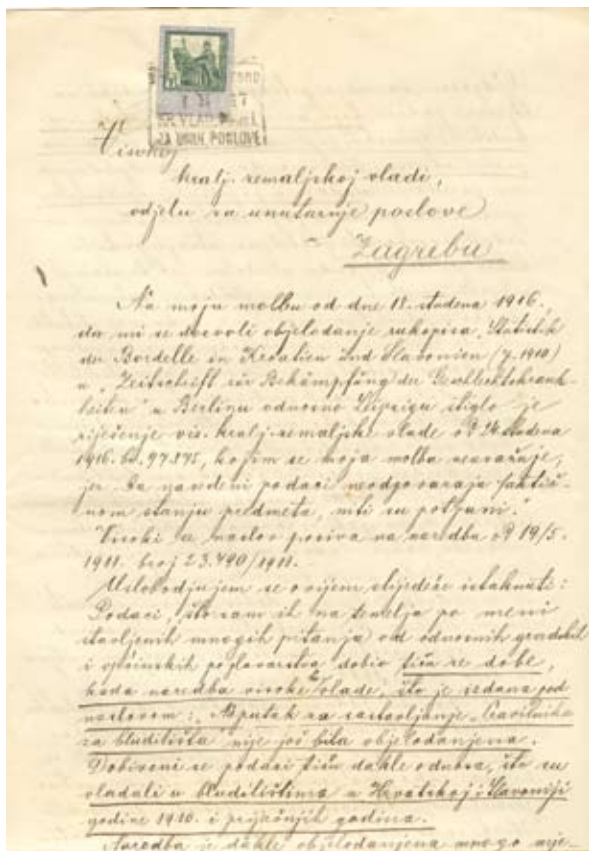 KR. VLAD.
ZA UNUT. POSLOVE
Visokoj
kralj. zemaljskoj vladi,
odjelu za unutarnje poslove
Zagrebu
Na moju molbu od dne 18. studena 1916.
da mi se dozvoli objelodanje rukopisa „Statistik
der Bordelle in Kroatien und Slavonien (J. 1910)
u „Zeitschrift für Bekämpfung der Geschlechtskrank-
heiten" u Berlinu odnosno Leipzigu stiglo je
riješenje vis. kralj. zemaljske vlade od 24. studena
1916. br. 97.875, kojim se moja molba neuvažuje,
jer „da navedeni podaci neodgovaraju faktič-
nom stanju predmeta, niti su potpuni."
Visoki se naslov poziva na naredbu od 19/5.
1911. broj 23.490/1911.
Uslobodjujem se ovijem slijedeće istaknuti:
Podaci, što sam ih na temelju po meni
stavljenih mnogih pitanja od odnosnih gradskih
i općinskih poglavarstva dobio tiču se dobe,
kada naredba visoke vlade, što je izdana pod
naslovom: „Naputak za sastavljanje „Pravilnika
za bludilišta" nije još bila objelodanjena.
Dobiveni se podaci tiču dakle odnosa, što su
vladali u bludilištima u Hrvatskoj i Slavoniji
godine 1910. i prijašnjih godina.
Naredba je dakle objelodanjena mnogo mje-